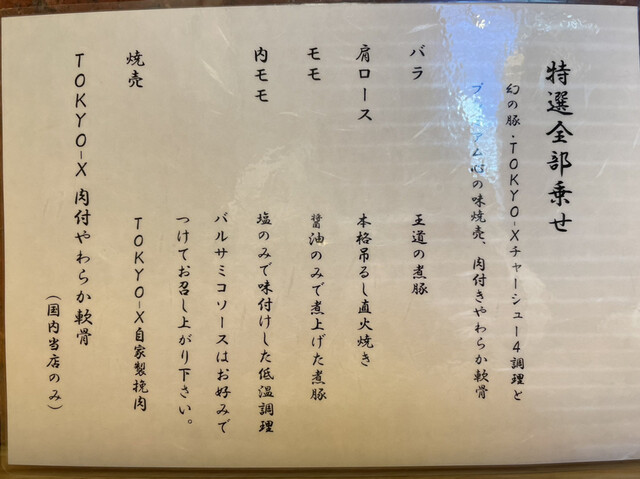 特選全部乗せ
幻の豚・TOKYO-Xチャーシュー4調理と
プ アム心の味焼売、肉付きやわらか軟骨
バラ 王道の煮豚
肩ロース 本格吊るし直火焼き
モモ 醤油のみで煮上げた煮豚
内モモ 塩のみで味付けした低温調理
バルサミコソースはお好みで
つけてお召し上がり下さい。
焼売 TOKYO-X自家製挽肉
TOKYO-X 肉付やわらか軟骨
(国内当店のみ)